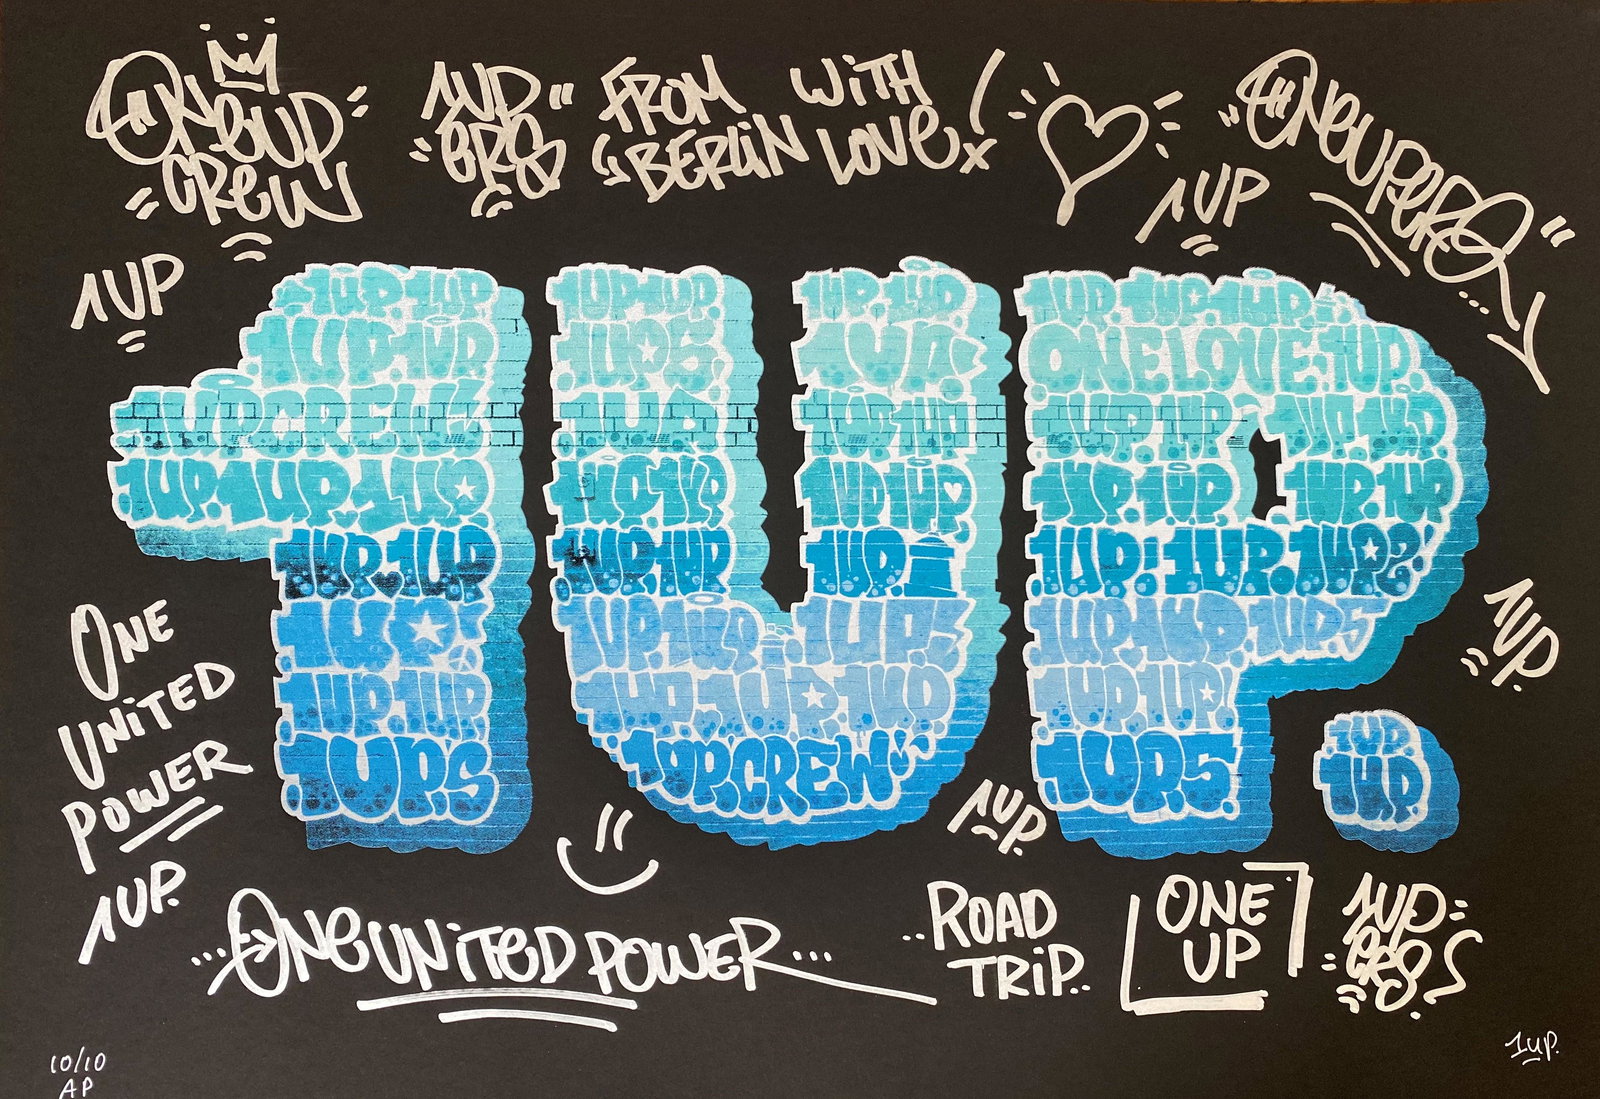 ONEUP
CREW
1UP
ERS
FROM WITH
BERLIN LOVE!
ONEUPERS
1UP
1UP
1UP.1UP
1UP.1UP
1UPCREW!
1UP.1UP.1UP.
1UP.1UP
1UP.
1UP.1UP
1UP'S
1UP.1UP.
1UPS.
1UP
1UP.1UP
1UP.1UP
1UP.1UP
1UP.1UP
1UP.
1UP.1UP
1UP.1UP
1UP.
1UP.1UP.1UP!
1UP.1UP.1UP
1UPCREW
1UP.1UP.1UP.
ONELOVE.1UP.
1UP.1UP
1UP.1UP
1UP.1UP
1UP.1UP
1UP.1UP.1UP
1UP.1UP.1UPS
1UP.1UP!
1UPS.
1UP
1UP.
ONE
UNITED
POWER
1UP.
1UP.
1UP.
...ONEUNITEDPOWER...
..ROAD
TRIP..
ONE
UP
1UP
ERS
10/10
AP
1UP.